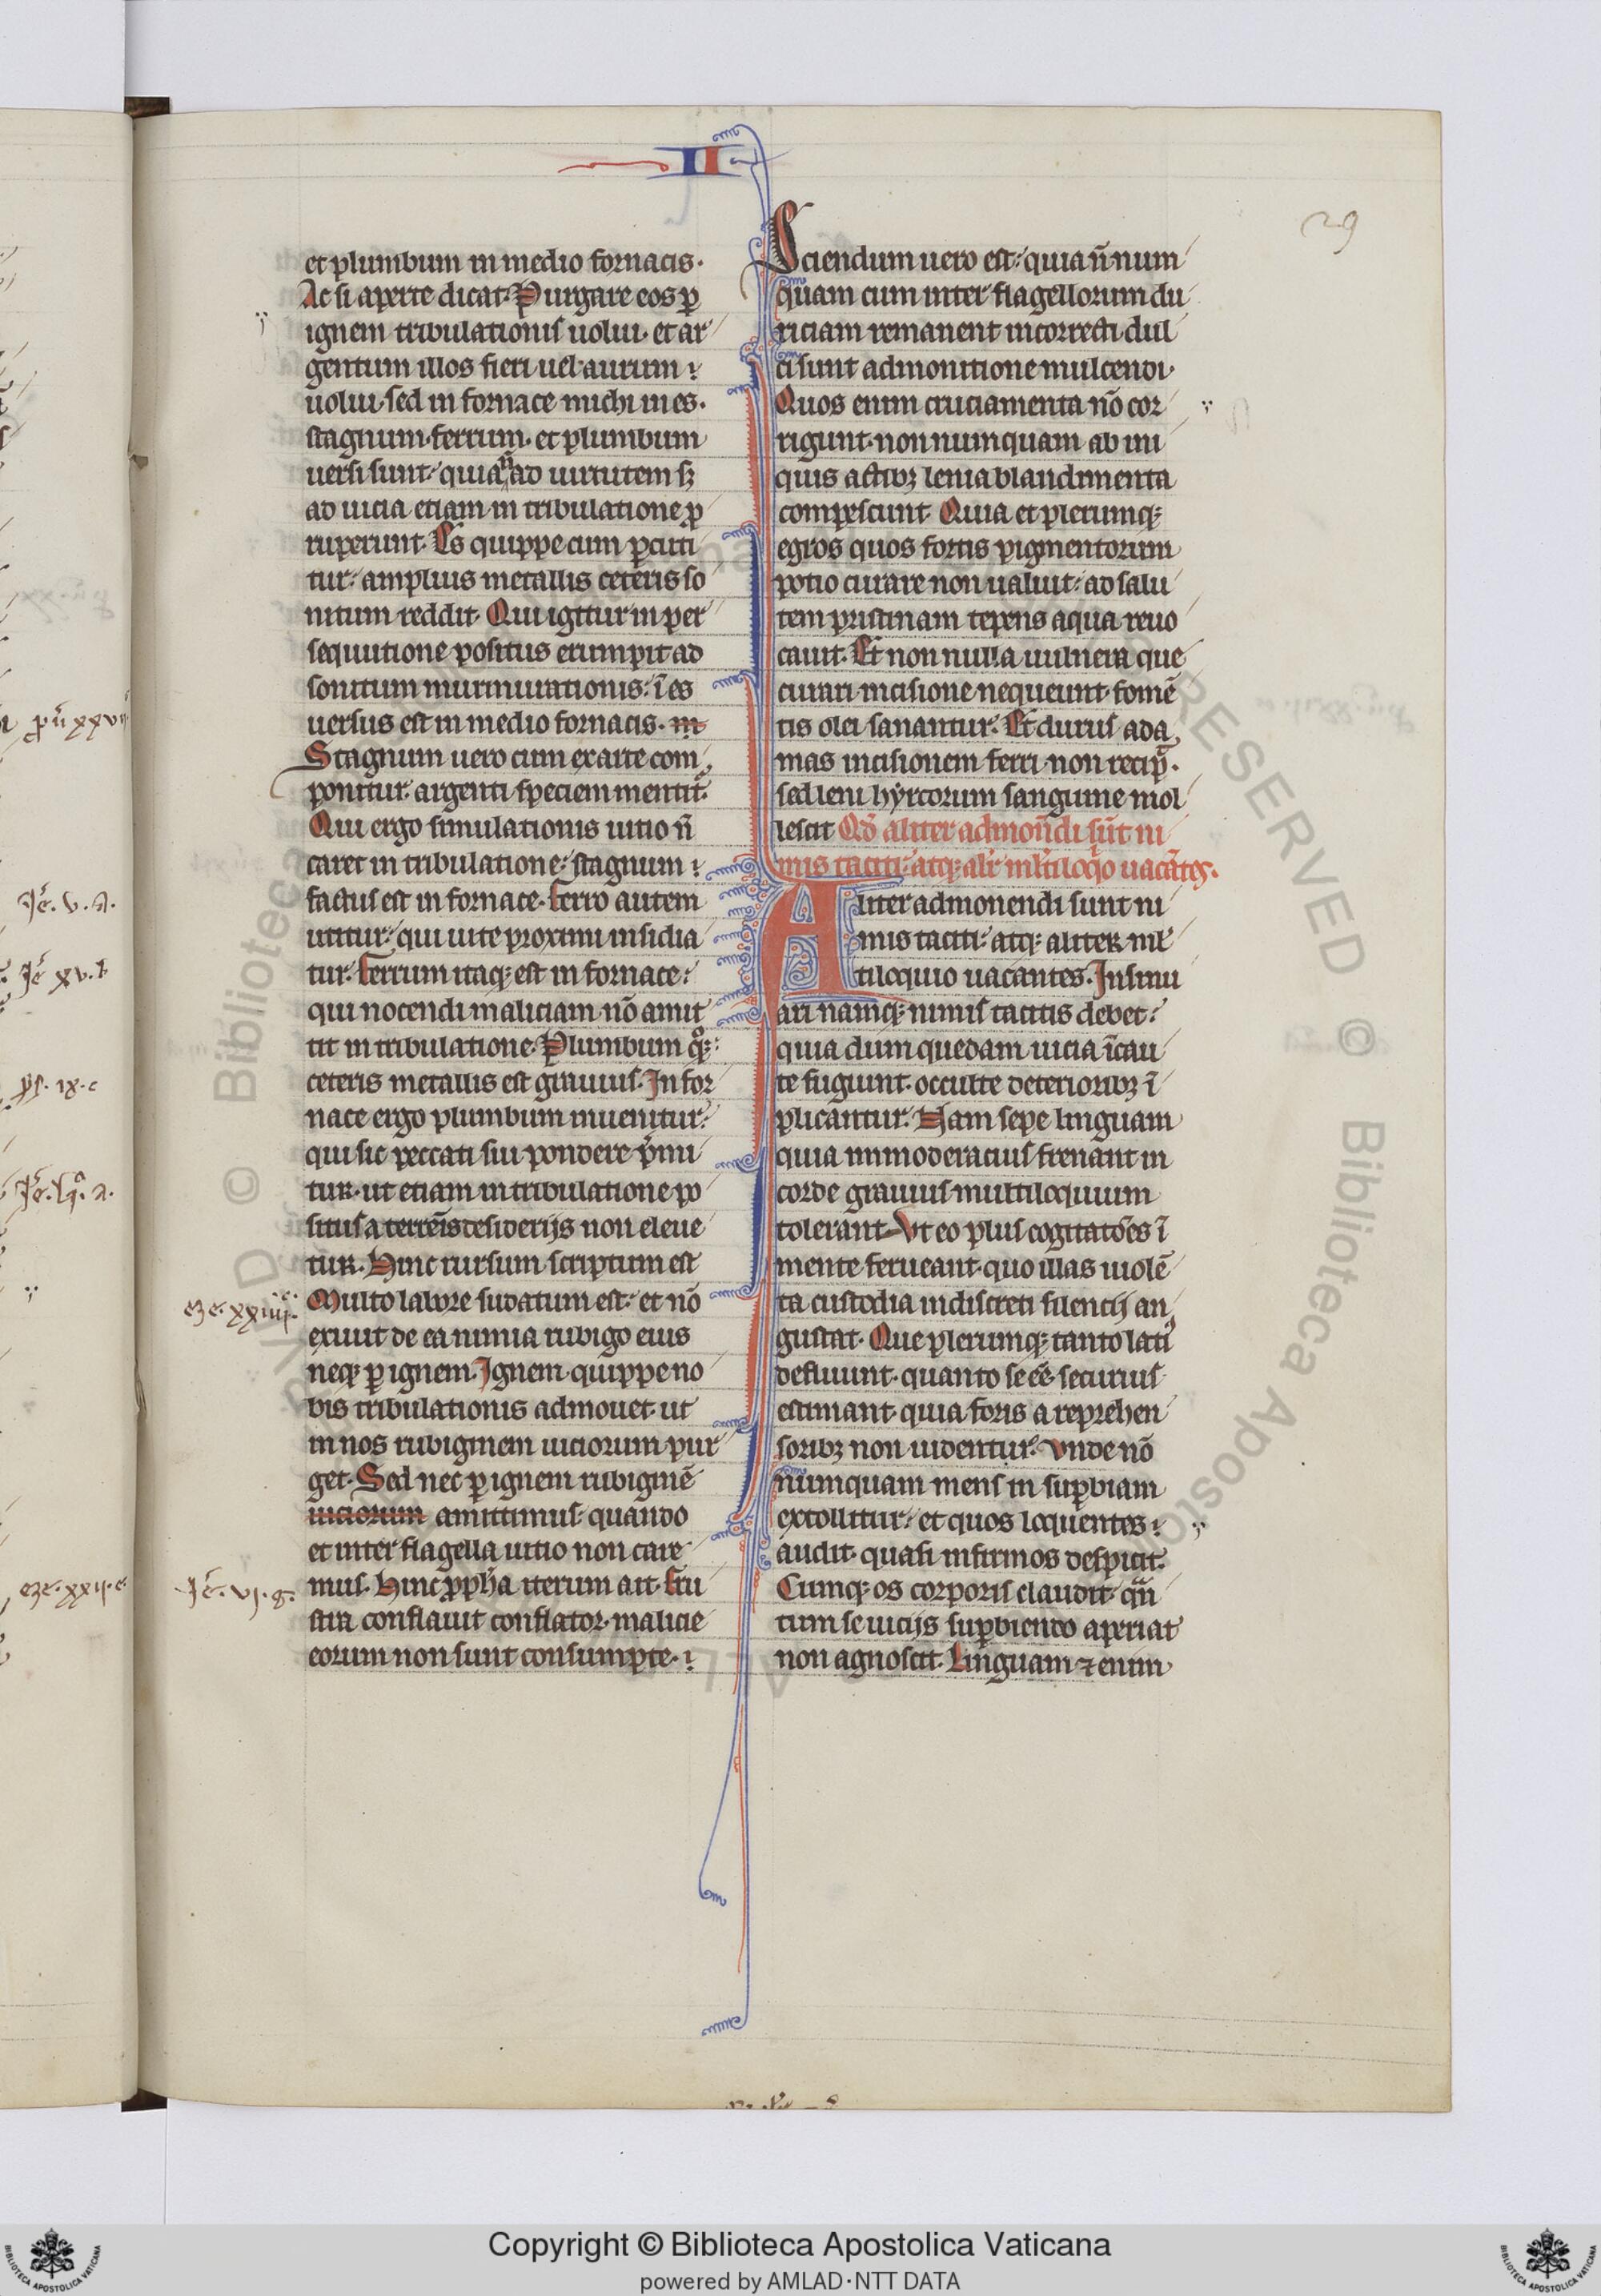 II
29
et plumbum in medio fornacis.
Ac si aperte dicat. Purgare eos ꝑ
ignem tribulationis uolui. et ar
gentum illos fieri uel aurum ⁊
uolui. sed in fornace michi in es.
stagnum. ferrum. et plumbum
uersi sunt. quia n̄ ad uirtutem sꝫ
ad uicia etiam in tribulatione ꝓ
ruperunt. Es quippe cum ꝑcuti
tur. amplius metallis ceteris so
nitum reddit. Qui igitur in per
sequutione positus erumpit ad
sonitum murmurationis. ī es
uersus est in medio fornacis. in
Stagnum uero cum ex arte com
ponitur. argenti speciem mentit᷑.
Qui ergo simulationis uitio n̄
caret in tribulatione. stagnum ⁊
factus est in fornace. Ferro autem
utitur. qui uite proximi insidia
tur. Ferrum itaqꝫ est in fornace.
qui nocendi maliciam nō amit
tit in tribulatione. Plumbum qͦꝫ
ceteris metallis est grauius. In for
nace ergo plumbum inuenitur.
qui sic peccati sui pondere p̄mi
tur. ut etiam in tribulatione po
situs a terrenis desiderijs non eleue
tur. Hinc rursum scriptum est
eze. xxiiii. c
Multo labore sudatum est. et nō
exiuit de ea nimia rubigo eius
neqꝫ ꝑ ignem. Ignem quippe no
bis tribulationis admouet. ut
in nos rubiginem uiciorum pur
get. Sed nec ꝑ ignem rubiginē
uiciorum amittimus. quando
et inter flagella uitio non care
Ie᷑. vi. g.
mus. Hinc ꝓph̄a iterum ait. Fru
stra conflauit conflator. malicie
eorum non sunt consumpte. ⁊
Sciendum uero est. quia n̄ num
quam cum inter flagellorum du
riciam remanent incorrecti. dul
ci sunt admonitione mulcendi.
Quos enim cruciamenta nō cor
rigunt. non numquam ab ini
quis actibꝫ lenia blandimenta
compescunt. Quia et plerumqꝫ
egros quos fortis pigmentorum
potio curare non ualuit. ad salu
tem pristinam tepens aqua reuo
cauit. Et non nulla uulnera que
curari incisione nequeunt. fomē
tis olei sanantur. Et durus ada
mas incisionem ferri non recip̄.
sed leni hyrcorum sanguine mol
lescit. Qď aliter admonēdi sūt ni
mis taciti. atqꝫ alr̄ ml̄tiloqͥo uacātes.
Aliter admonendi sunt ni
mis taciti. atqꝫ aliter ml̄
tiloquio uacantes. Insinu
ari namqꝫ nimis tacitis debet.
quia dum quedam uicia īcau
te fugiunt. occulte deterioribꝫ ī
plicantur. Nam sepe linguam
quia immoderacius frenant in
corde grauius multiloquium
tolerant. Vt eo plus cogitatōes ī
mente ferueant. quo illas uiolē
ta custodia indiscreti silencij an
gustat. Que plerumqꝫ tanto latiꝰ
defluunt. quanto se eē. securius
estimant. quia foris a reprehen
soribꝫ non uidentur. Vnde nō
numquam mens in suꝑbiam
extollitur. et quos loquentes ⁊
audit. quasi infirmos despicit.
Cumqꝫ os corporis claudit. qn̄
tum se uicijs suꝑbiendo aperiat
non agnoscit. Linguam ⁊ enim
pͥu̅ xxvii
Ie᷑. v. a.
Ie᷑ xv. b
ps. ix. c
Ie᷑. lͣ. a.
eze. xxii. e.
Copyright © Biblioteca Apostolica Vaticana
powered by AMLAD·NTT DATA